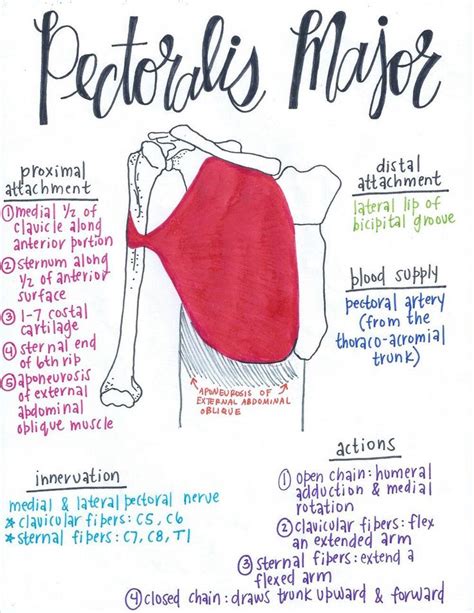 Pectoralis Major
proximal
attachment
① medial 1/2 of
clavicle along
anterior portion
② sternum along
1/2 of anterior
surface
③ 1-7, costal
cartilage
④ sternal end
of 6th rib
⑤ aponeurosis
of external
abdominal
oblique muscle
distal
attachment
lateral lip of
bicipital groove
blood supply
pectoral artery
(from the
thoraco-acromial
trunk)
APONEUROSIS OF
EXTERNAL ABDOMINAL
OBLIQUE
innervation
medial & lateral pectoral nerve
* clavicular fibers: C5, C6
* sternal fibers: C7, C8, T1
actions
① open chain: humeral
adduction & medial
rotation
② clavicular fibers: flex
an extended arm
③ sternal fibers: extend a
flexed arm
④ closed chain: draws trunk upward & forward